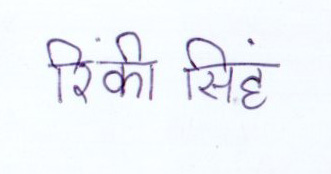 रिंकी सिहं